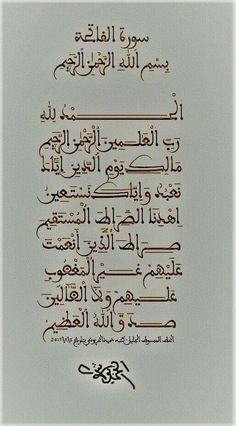 سورة الفاتحة
بِسْمِ اللهِ الرَّحْمٰنِ الرَّحِيمِ
الْحَمْدُ لِلهِ
رَبِّ الْعَالَمِينَ الرَّحْمٰنِ الرَّحِيمِ
مَالِكِ يَوْمِ الدِّينِ إِيَّاكَ
نَعْبُدُ وَإِيَّاكَ نَسْتَعِينُ
اِهْدِنَا الصِّرَاطَ الْمُسْتَقِيمَ
صِرَاطَ الَّذِينَ أَنْعَمْتَ
عَلَيْهِمْ غَيْرِ الْمَغْضُوبِ
عَلَيْهِمْ وَلَا الضَّالِّينَ
صَدَقَ اللهُ الْعَظِيمُ